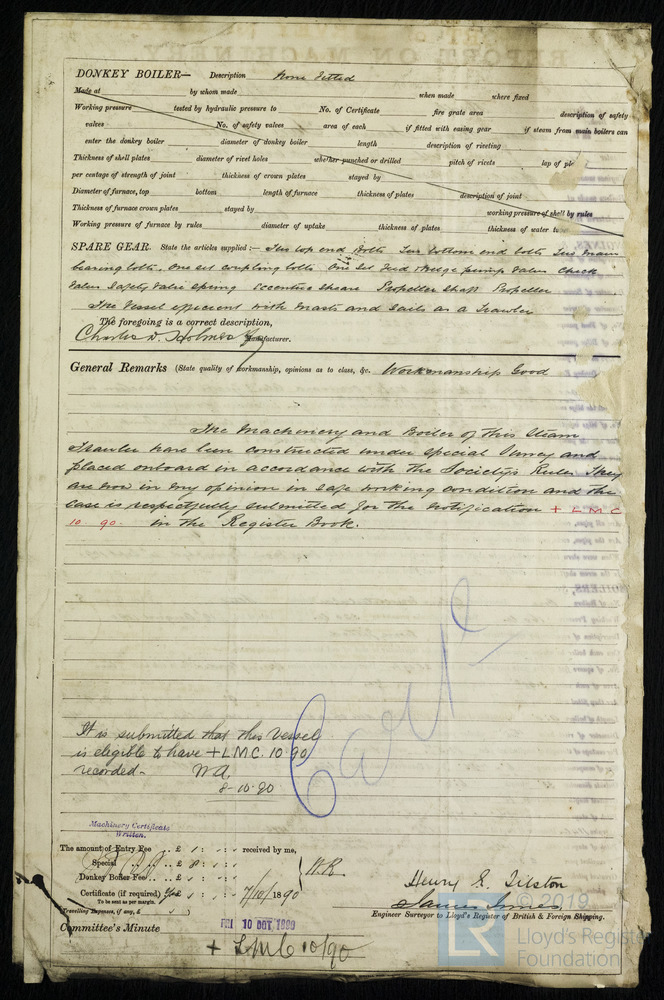 DONKEY BOILER— Description None fitted
Made at by whom made when made where fixed
Working pressure tested by hydraulic pressure to No. of Certificate fire grate area description of safety
valves No. of safety valves area of each if fitted with easing gear if steam from main boilers can
enter the donkey boiler diameter of donkey boiler length description of riveting
Thickness of shell plates diameter of rivet holes whether punched or drilled pitch of rivets lap of pl
per centage of strength of joint thickness of crown plates stayed by
Diameter of furnace, top bottom length of furnace thickness of plates description of joint
Thickness of furnace crown plates stayed by working pressure of shell by rules
Working pressure of furnace by rules diameter of uptake thickness of plates thickness of water tu
SPARE GEAR. State the articles supplied:— Two top end bolts Two bottom end bolts Two main
bearing bolts, One set coupling bolts One set feed & bilge pump valves Check
Valve Safety Valve Spring Eccentric Sheave Propeller Shaft Propeller
The Vessel efficient with masts and sails as a Trawler
The foregoing is a correct description,
Charles D. Holmes & Co Manufacturer.
General Remarks (State quality of workmanship, opinions as to class, &c. Workmanship Good
The Machinery and Boiler of this Steam
Trawler have been constructed under special Survey and
placed onboard in accordance with the Society's Rules They
are now in my opinion in safe working condition and the
case is respectfully submitted for the notification + L M C
10. 90. in the Register Book.
Cert
It is submitted that this Vessel
is eligible to have + LMC. 10.90
recorded.
8-10-90
Machinery Certificate
Written.
The amount of Entry Fee .. £ 1 : : received by me,
Special .. £ 8 : :
Donkey Boiler Fee .. £ : :
Certificate (if required) Yes £ : : 7/10/1890
To be sent as per margin.
(Travelling Expenses, if any, £ )
Henry S. Tilston
James Jones
Engineer Surveyor to Lloyd's Register of British & Foreign Shipping.
Committee's Minute FRI 10 OCT 1890
+ LMC 10/90
© 2019
LR
Lloyd's Register
Foundation